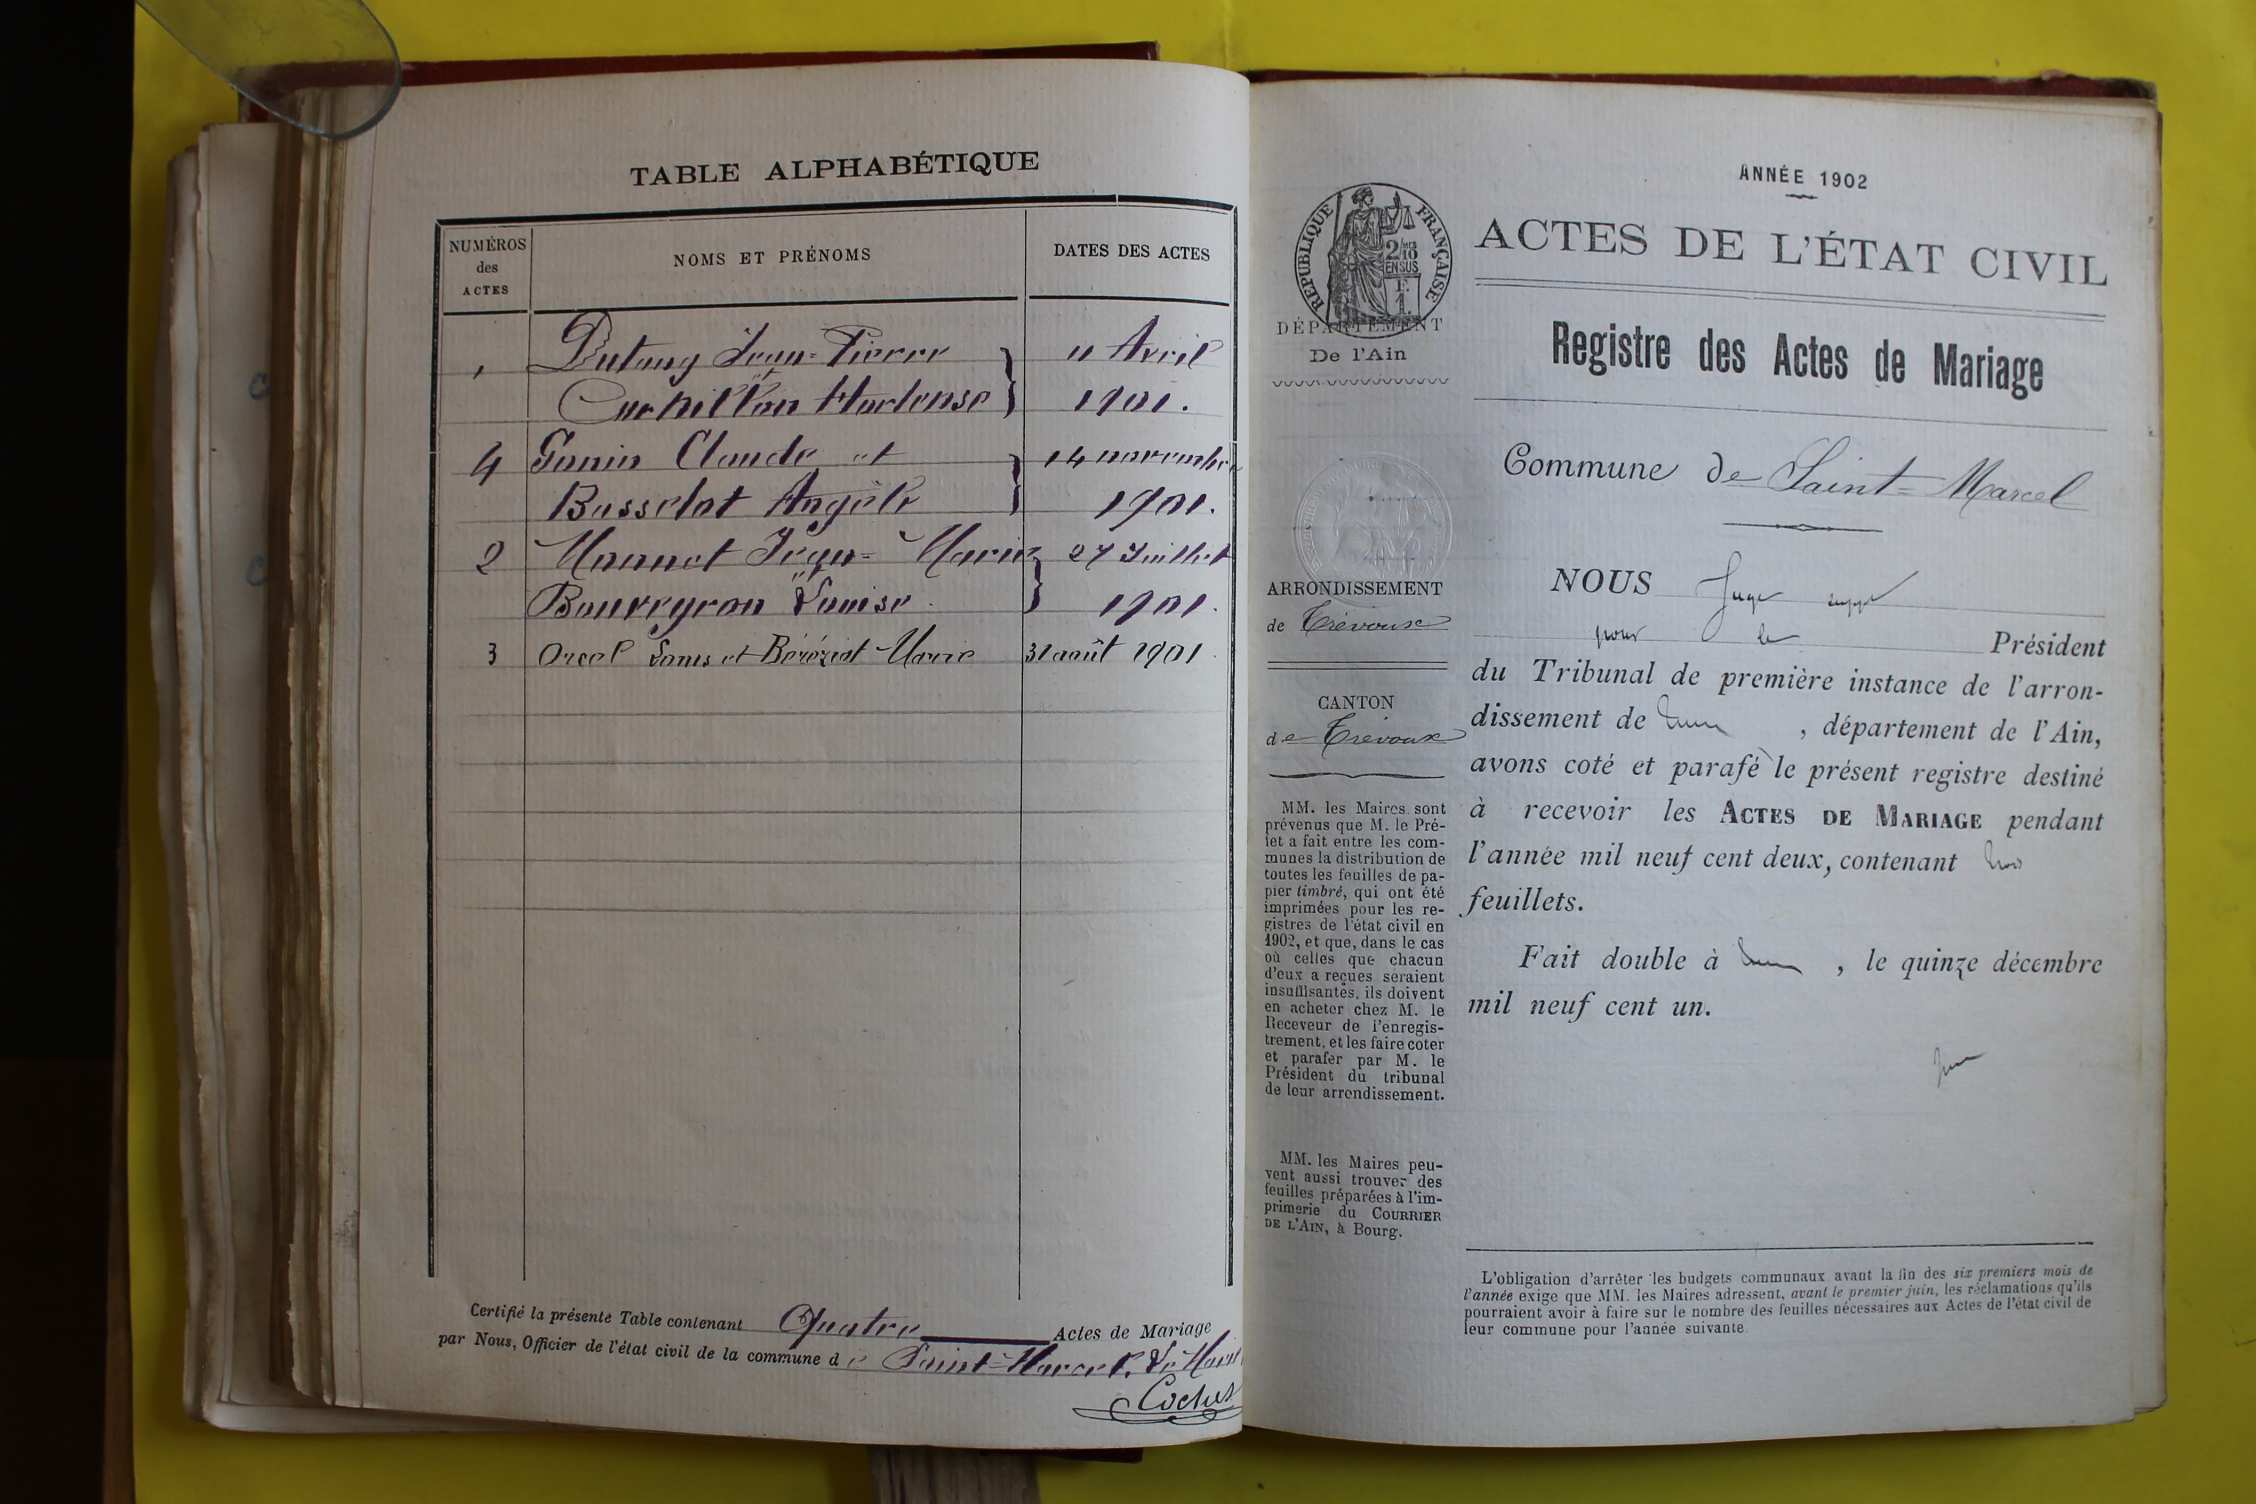 TABLE ALPHABÉTIQUE
NUMÉROS
des
ACTES
NOMS ET PRÉNOMS
DATES DES ACTES
1 Dutang Jean-Pierre 11 Avril
et
Hortense 1901.
4 Gonin Claude et 14 novembre
Busselot Angèle 1901.
2 Monnet Jean-Marie 27 Juillet
et
Bouveyron Louise 1901.
3 Orcel Louis et Béréziat Marie 31 août 1901.
Certifié la présente Table contenant Quatre Actes de Mariage
par Nous, Officier de l'état civil de la commune de Saint-Marcel. Le Maire
Cochet
ANNÉE 1902
ACTES DE L'ÉTAT CIVIL
RÉPUBLIQUE FRANÇAISE
2/10
EN SUS
DÉPARTEMENT
De l'Ain
Registre des Actes de Mariage
Commune de Saint-Marcel
ARRONDISSEMENT
de Trévoux
CANTON
de Trévoux
MM. les Maires sont
prévenus que M. le Pré-
fet a fait entre les com-
munes la distribution de
toutes les feuilles de pa-
pier timbré, qui ont été
imprimées pour les re-
gistres de l'état civil en
1902, et que, dans le cas
où celles que chacun
d'eux a reçues seraient
insuffisantes, ils doivent
en acheter chez M. le
Receveur de l'enregis-
trement, et les faire coter
et parafer par M. le
Président du tribunal
de leur arrondissement.
MM. les Maires peu-
vent aussi trouver des
feuilles préparées à l'im-
primerie du COURRIER
DE L'AIN, à Bourg.
NOUS Juge supp
pour le Président
du Tribunal de première instance de l'arron-
dissement de , département de l'Ain,
avons coté et parafé le présent registre destiné
à recevoir les ACTES DE MARIAGE pendant
l'année mil neuf cent deux, contenant trois
feuillets.
Fait double à , le quinze décembre
mil neuf cent un.
L'obligation d'arrêter les budgets communaux avant la fin des six premiers mois de
l'année exige que MM. les Maires adressent, avant le premier juin, les réclamations qu'ils
pourraient avoir à faire sur le nombre des feuilles nécessaires aux Actes de l'état civil de
leur commune pour l'année suivante.